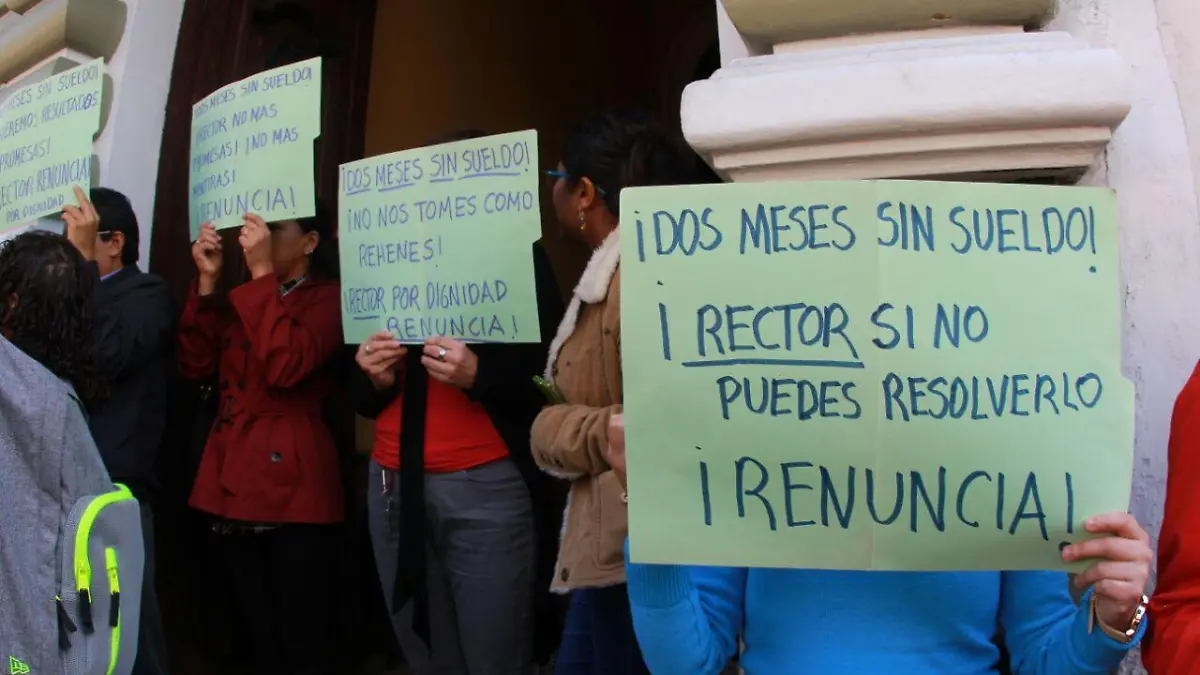 MESES SIN SUELDO!
RESULTADOS
PROMESAS!
RENUNCIA!
POR DIGNIDAD
¡DOS MESES SIN SUELDO!
¡RECTOR NO MAS
PROMESAS! ¡NO MAS
MENTIRAS!
¡RENUNCIA!
¡DOS MESES SIN SUELDO!
¡NO NOS TOMES COMO
REHENES!
¡RECTOR POR DIGNIDAD
RENUNCIA!
¡DOS MESES SIN SUELDO!
¡RECTOR SI NO
PUEDES RESOLVERLO
¡RENUNCIA!